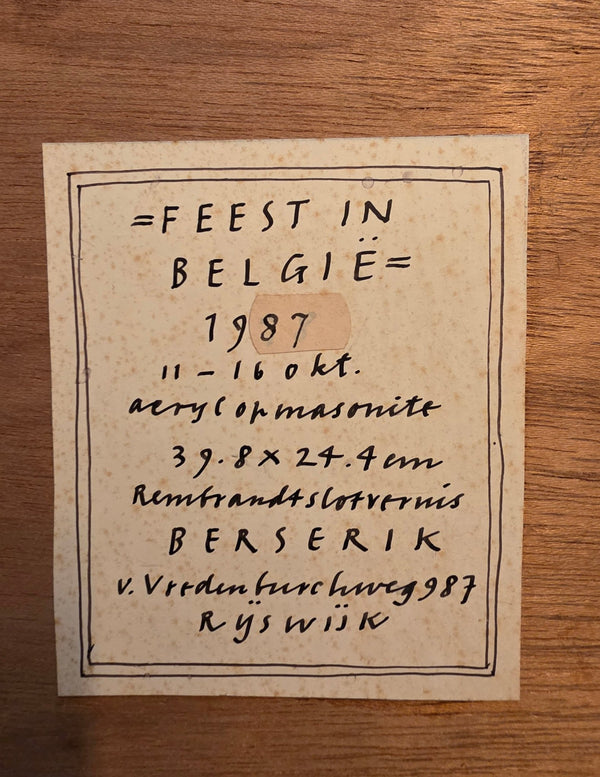 =FEEST IN
BELGIË=
1987
11 – 16 okt.
acryl op masonite
39.8 x 24.4 cm
Rembrandtslotvernis
BERSERIK
v. Vredenburchweg 987
Rÿswïjk